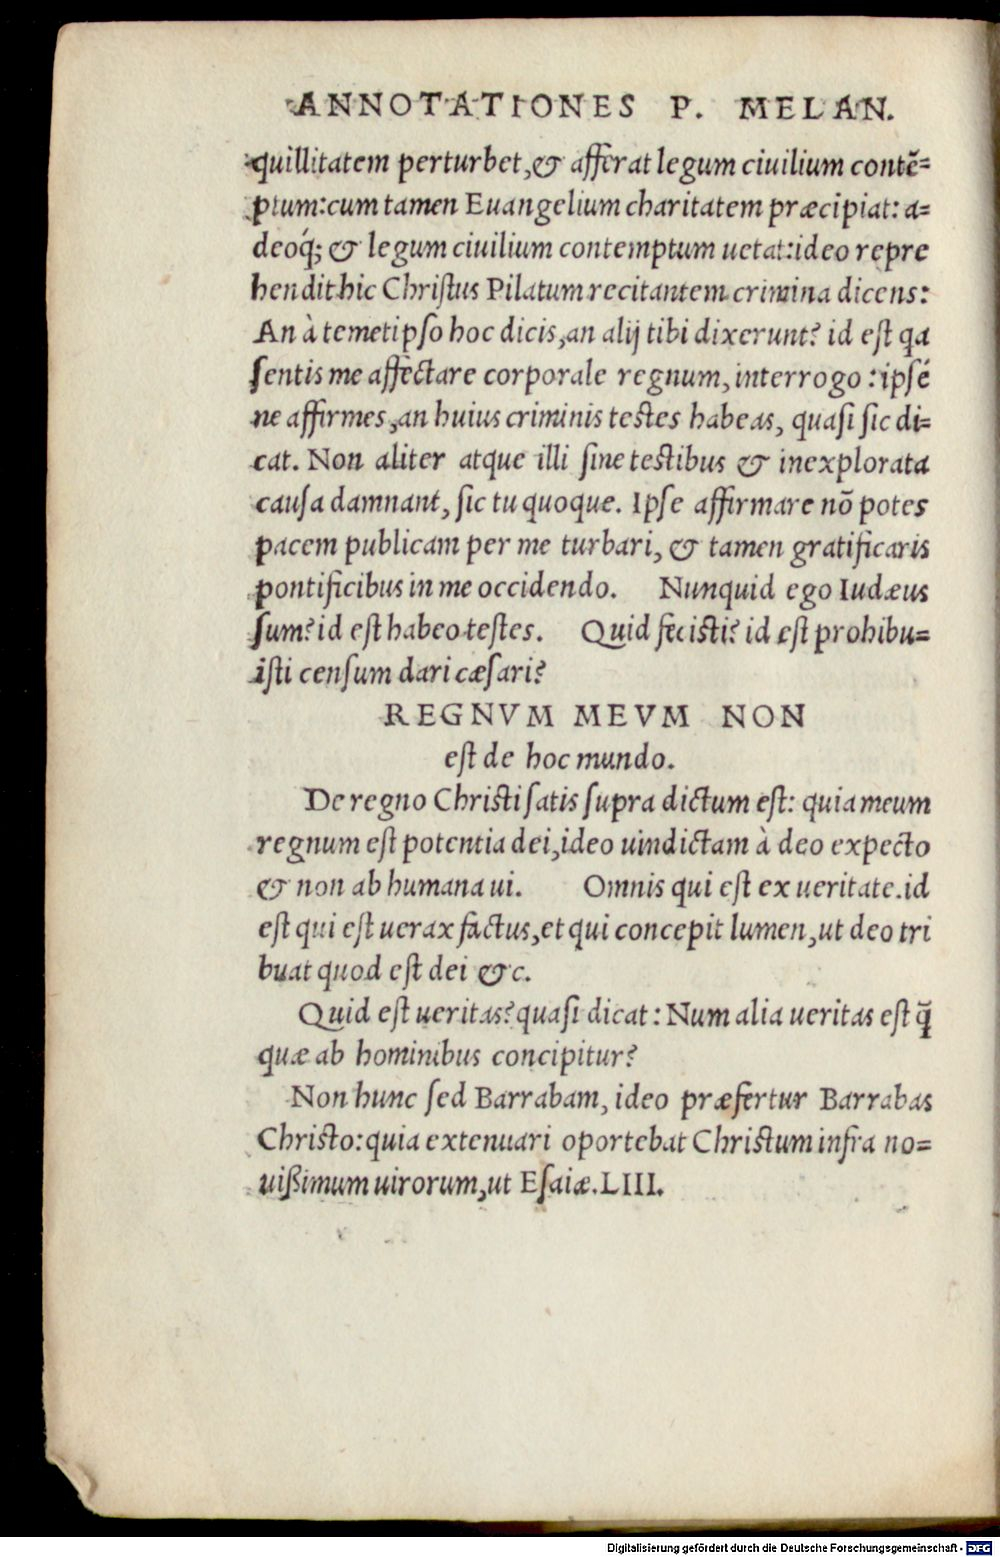 ANNOTATIONES P. MELAN.
quillitatem perturbet, & afferat legum ciuilium contẽ=
ptum: cum tamen Euangelium charitatem præcipiat: a=
deoq́; & legum ciuilium contemptum uetat: ideo repre
hendit hic Chriſtus Pilatum recitantem crimina dicens:
An à temetipſo hoc dicis, an alij tibi dixerunt? id eſt qa
ſentis me affectare corporale regnum, interrogo: ipſé
ne affirmes, an huius criminis teſtes habeas, quaſi ſic di=
cat. Non aliter atque illi ſine teſtibus & inexplorata
cauſa damnant, ſic tu quoque. Ipſe affirmare nõ potes
pacem publicam per me turbari, & tamen gratificaris
pontificibus in me occidendo. Nunquid ego Iudæus
ſum? id eſt habeo teſtes. Quid feciſti? id eſt prohibu=
iſti cenſum dari cæſari?
REGNVM MEVM NON
eſt de hoc mundo.
De regno Chriſti ſatis ſupra dictum eſt: quia meum
regnum eſt potentia dei, ideo uindictam à deo expecto
& non ab humana ui. Omnis qui eſt ex ueritate. id
eſt qui eſt uerax factus, et qui concepit lumen, ut deo tri
buat quod eſt dei &c.
Quid eſt ueritas? quaſi dicat: Num alia ueritas eſt q̃
quæ ab hominibus concipitur?
Non hunc ſed Barrabam, ideo præfertur Barrabas
Chriſto: quia extenuari oportebat Chriſtum infra no=
uißimum uirorum, ut Eſaiæ. LIII.
Digitalisierung gefördert durch die Deutsche Forschungsgemeinschaft - DFG